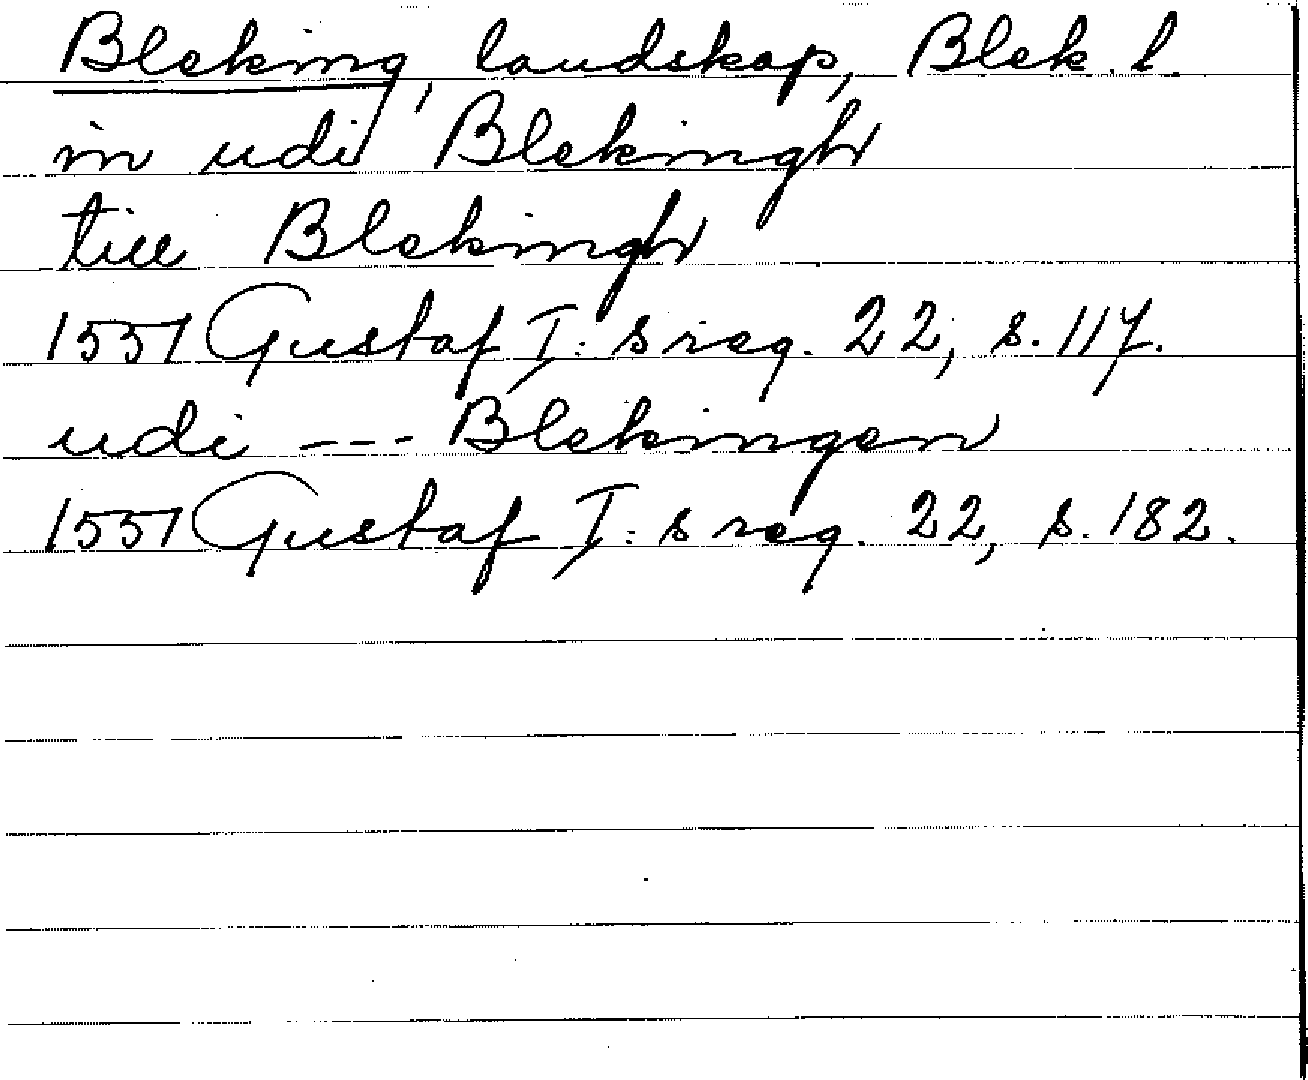 Bleking, landskap, Blek. l.
in udi Blekingh
till Blekingh
1551 Gustaf I:s reg. 22, s. 117.
udi --- Blekingen
1551 Gustaf I:s reg. 22, s. 182.